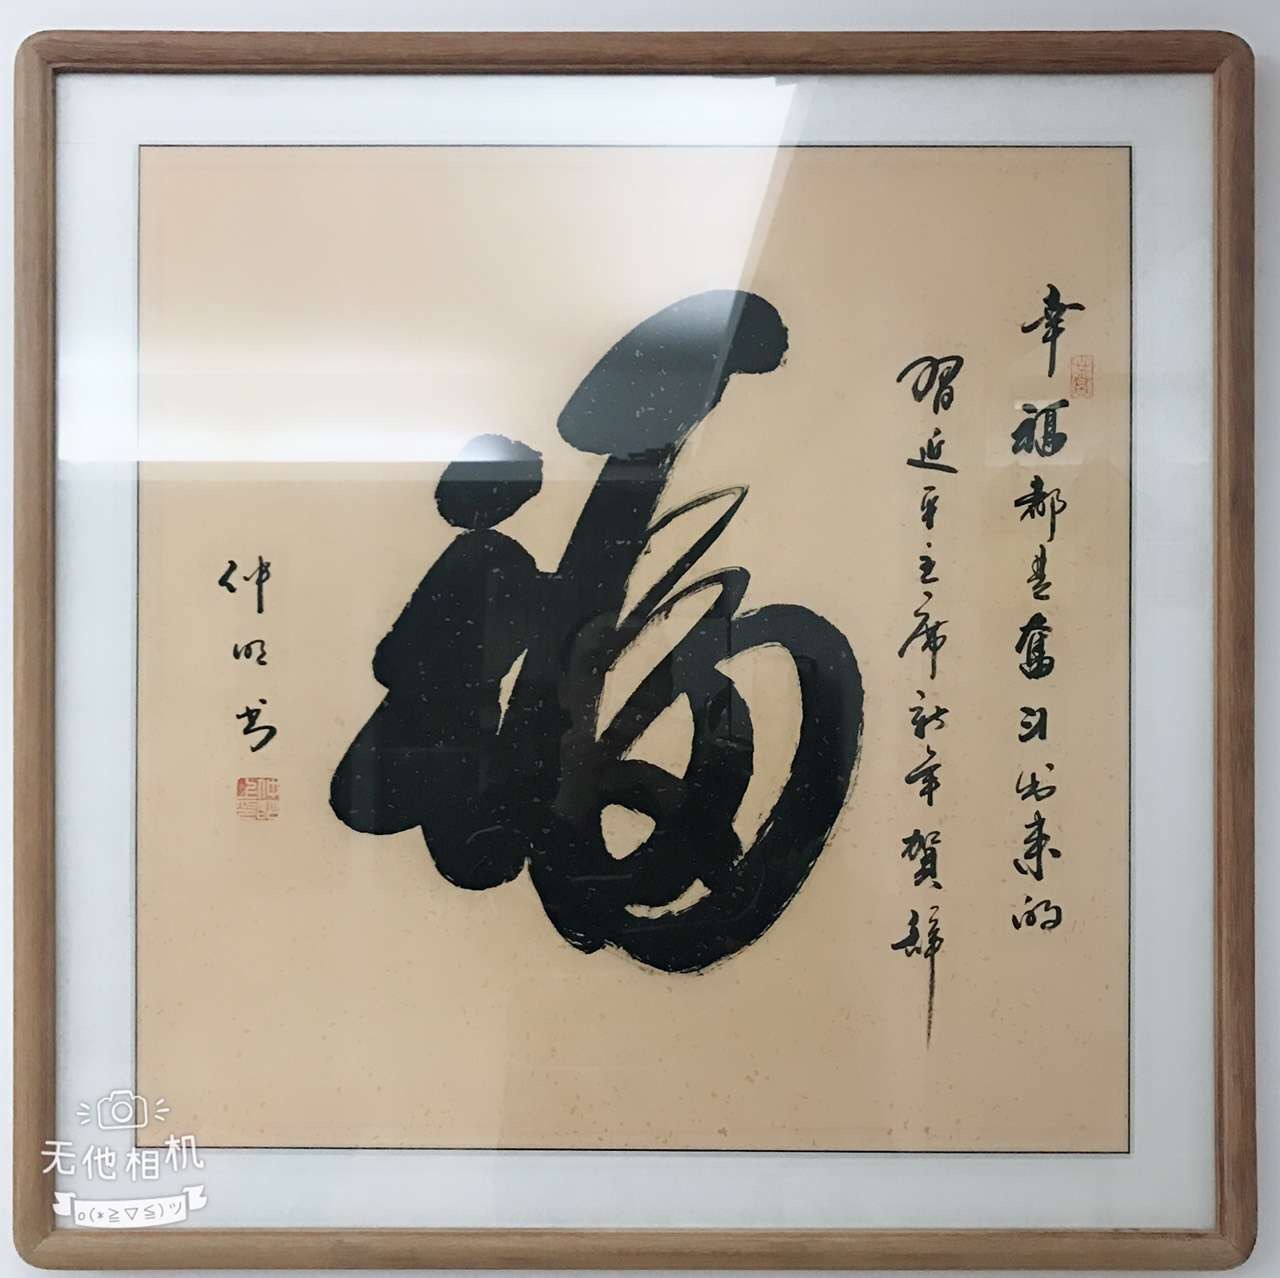 幸福都是奮斗出来的
習近平主席新年賀辞
福
仲明书
无他相机
o(*≧▽≦)ツ